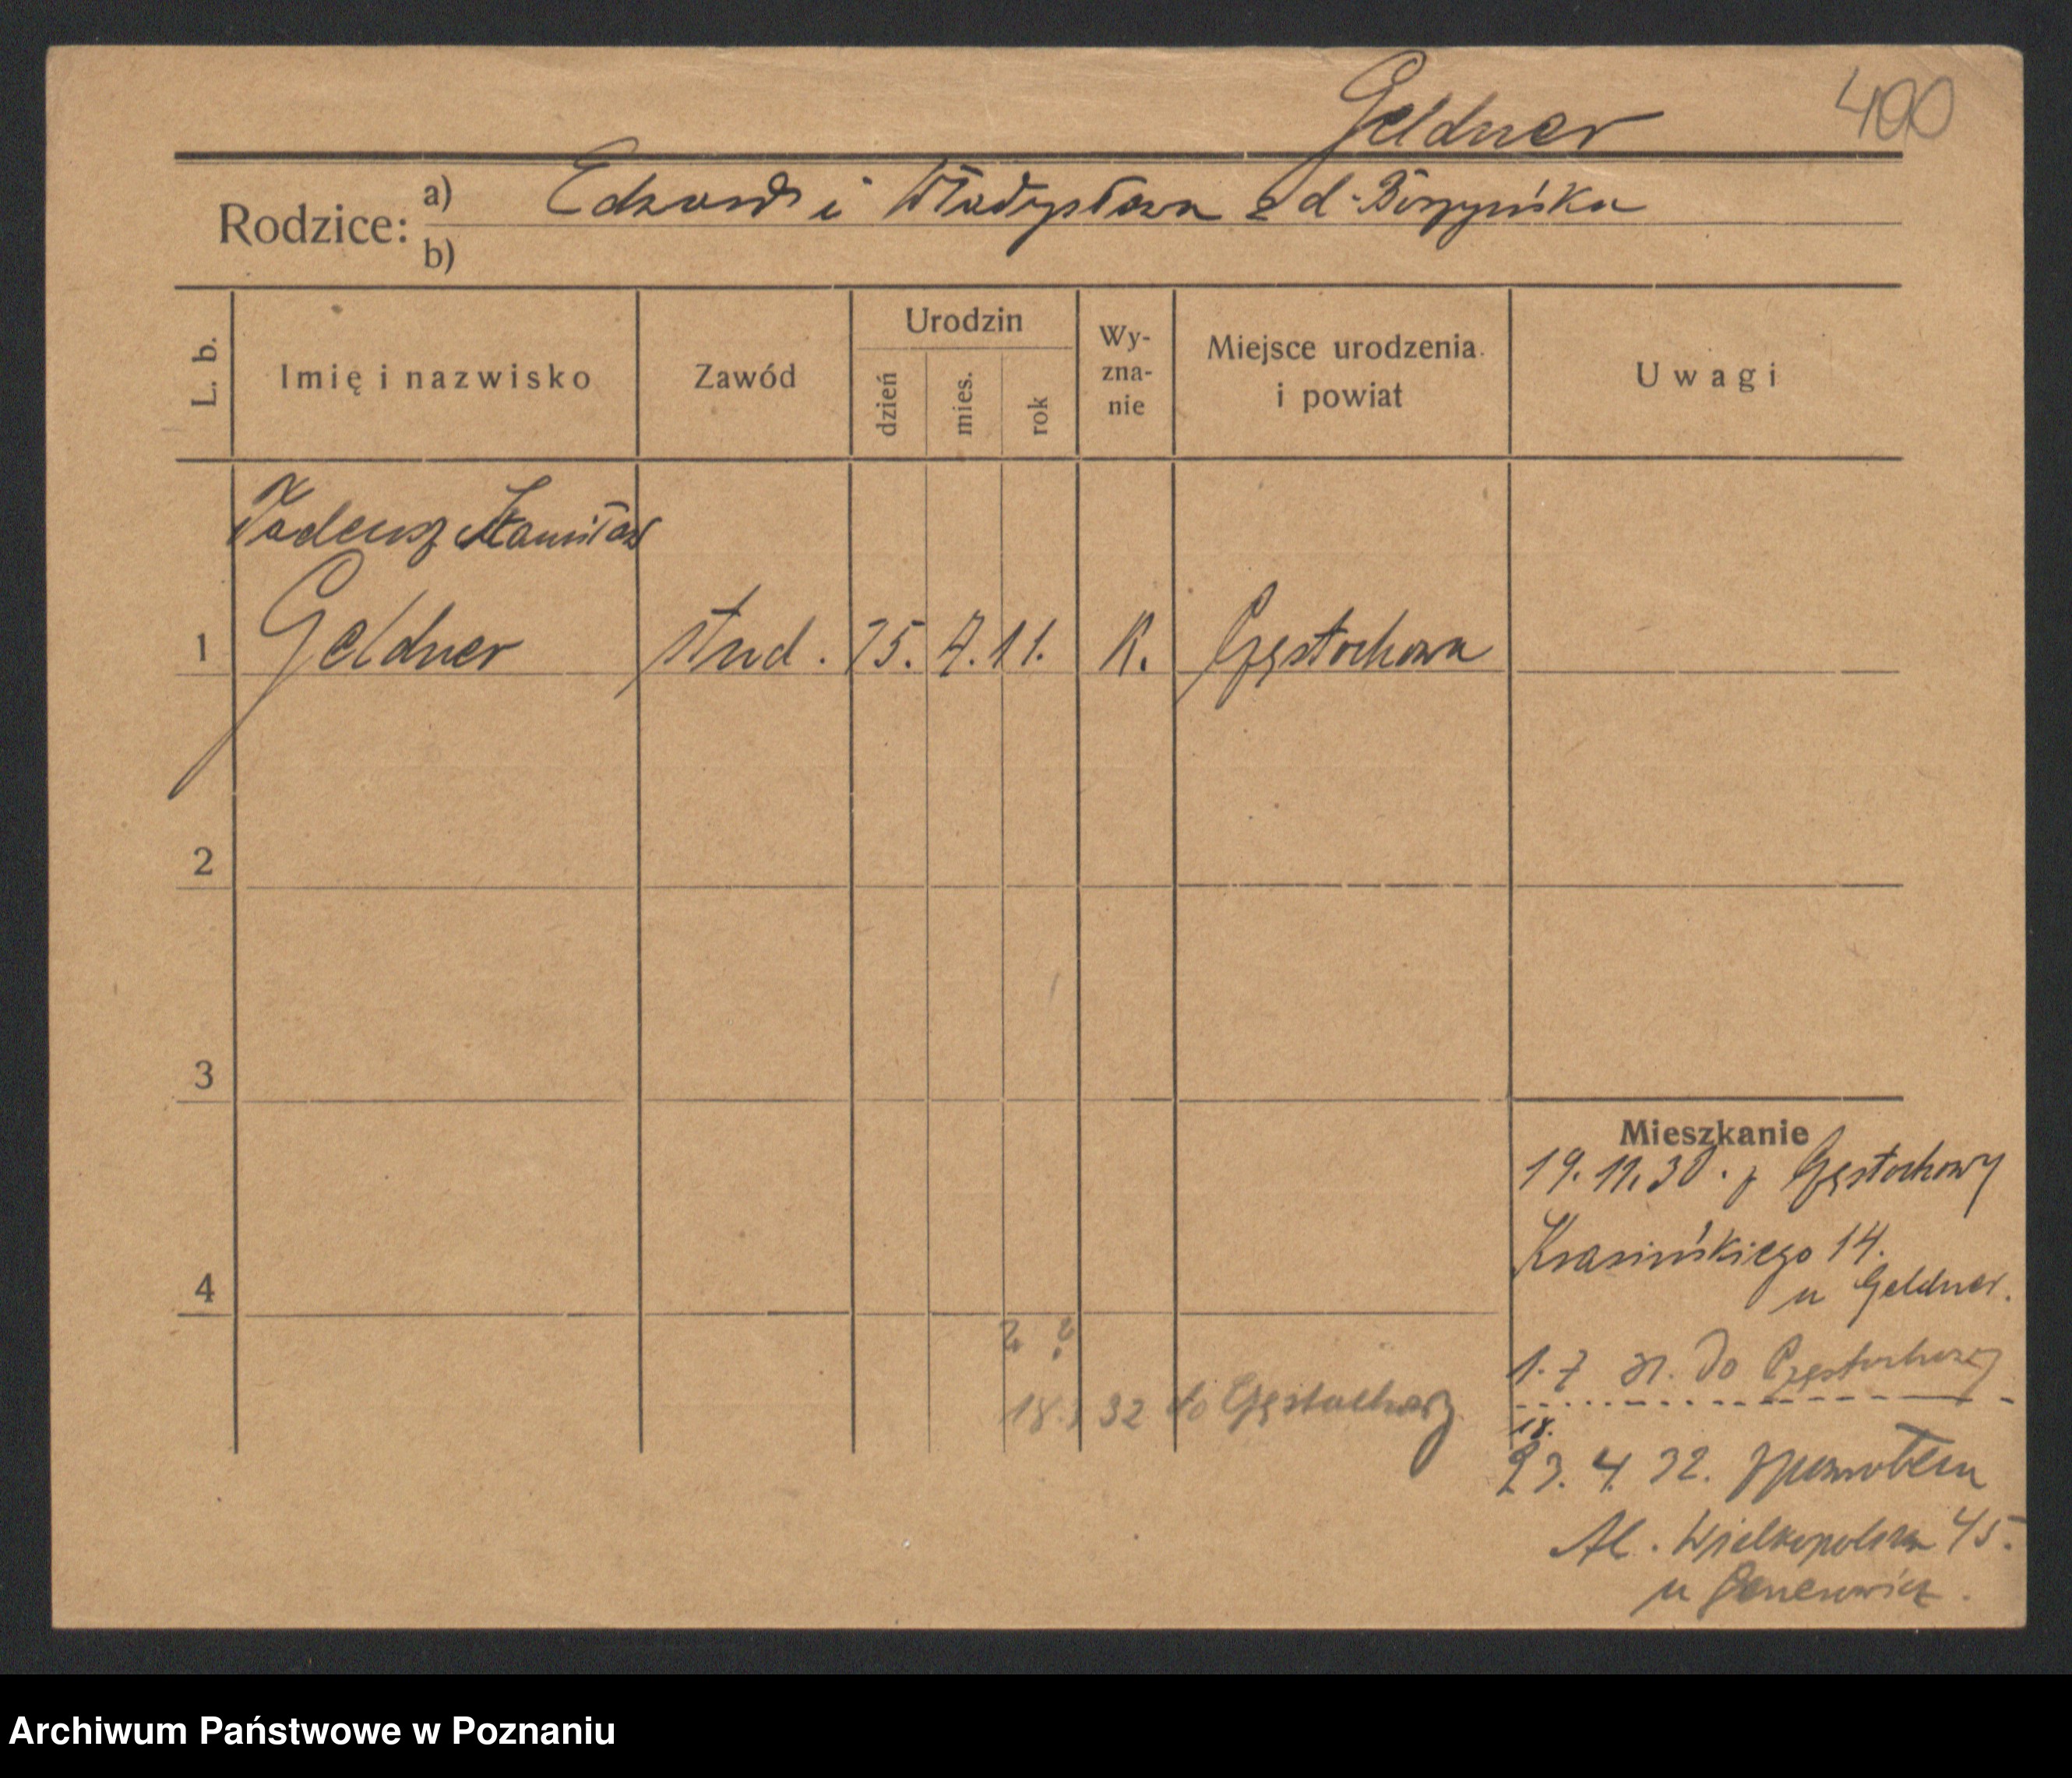 Geldner
400
Rodzice: a) Edward i Władysława z d.
b)
L. b.
Imię i nazwisko
Zawód
Urodzin
dzień
mies.
rok
Wy-
zna-
nie
Miejsce urodzenia
i powiat
Uwagi
Tadeusz Stanisław
1 Geldner stud. 25. 7. 11. K. Częstochowa
2
3
4
Mieszkanie
19. 11. 30. z Częstochowy
Krasińskiego 14.
u Geldner.
1. 7 31. do Częstochowy
18. 32 do Częstochowy
18.
23. 4. 32. z powrotem
Al. Wielkopolska 45.
u
Archiwum Państwowe w Poznaniu